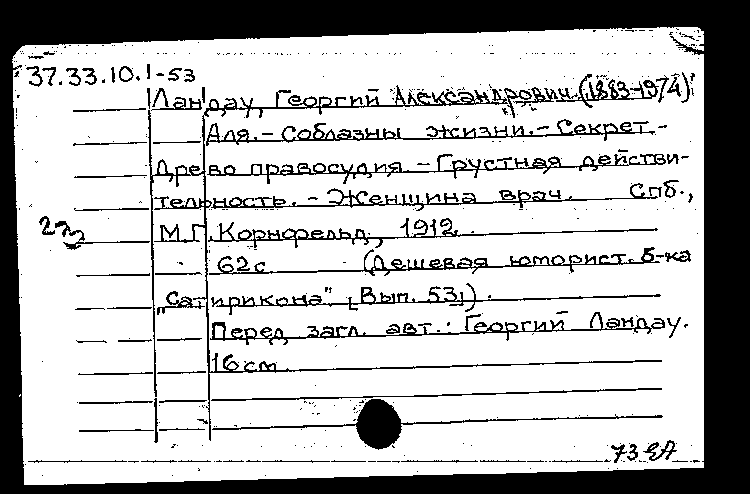 37.33.10.1-53
Ландау, Георгий Александрович (1883-1974)
Аля. - Соблазны жизни. - Секрет. -
Древо правосудия. - Грустная действи-
тельность. - Женщина врач. Спб.,
М.Г. Корнфельд, 1912.
62с (Дешевая юморист. б-ка
„Сатирикона" [Вып. 53]).
Перед загл. авт.: Георгий Ландау.
16см.
73